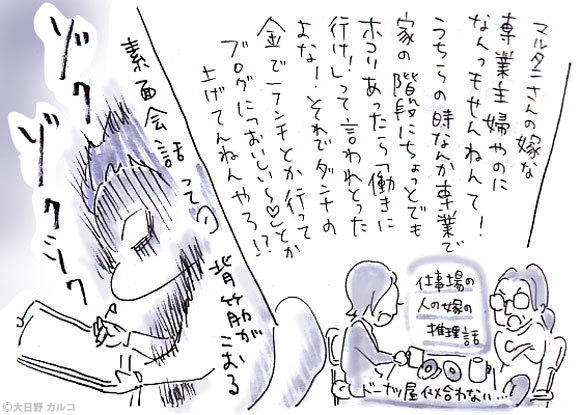 マルタニさんの嫁な
専業主婦やのに
なんっもせんねんて!
うちらの時なんか専業で
家の階段にちょっとでも
ホコリあったら「働きに
行け!」って言われとった
よな!それでダンナの
金でランチとか行って
ブログに「おいしい〜♡」とか
上げてんねんやろ!?
仕事場の
人の嫁の
推理話
ドーナツ屋似合わない…
素面会話って
背筋がこおる
ゾク
ゾク
©大日野 カルコ